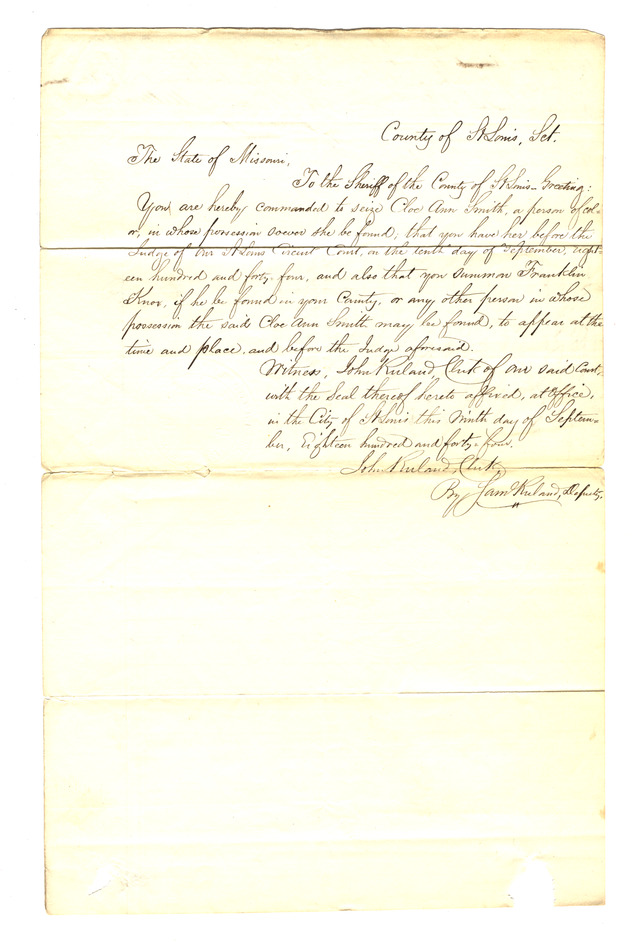 County of St Louis, Sct.
The State of Missouri,
To the Sheriff of the County of St Louis – Greeting:
You are hereby commanded to seize Cloe Ann Smith, a person of col-
or, in whose possession soever she be found; that you have her before the
Judge of our St Louis Circuit Court, on the tenth day of September, eight-
een hundred and forty-four, and also that you summon Franklin
Knox, if he be found in your County, or any other person in whose
possession the said Cloe Ann Smith may be found, to appear at the
time and place, and before the Judge aforesaid.
Witness, John Ruland, Clerk of our said Court,
with the Seal thereof hereto affixed, at office,
in the City of St Louis this Ninth day of Septem-
ber, Eighteen hundred and forty-four.
John Ruland, Clerk,
By Saml Ruland, Deputy.